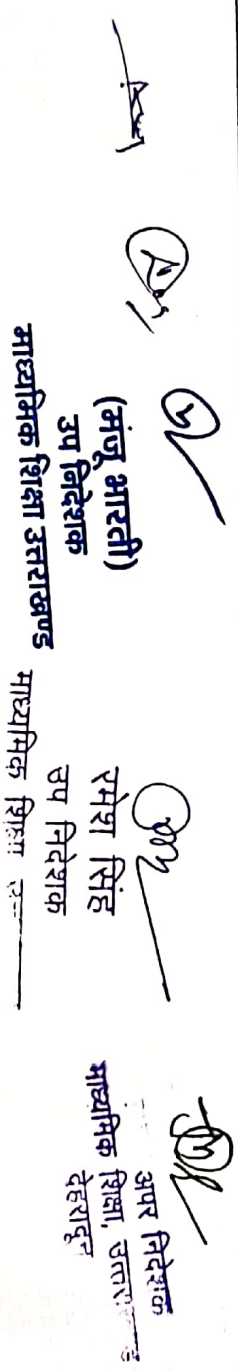 (मंजू भारती)
उप निदेशक
माध्यमिक शिक्षा उत्तराखण्ड
रमेश सिंह
उप निदेशक
माध्यमिक शिक्षा
अपर निदेशक
माध्यमिक शिक्षा,
देहरादून